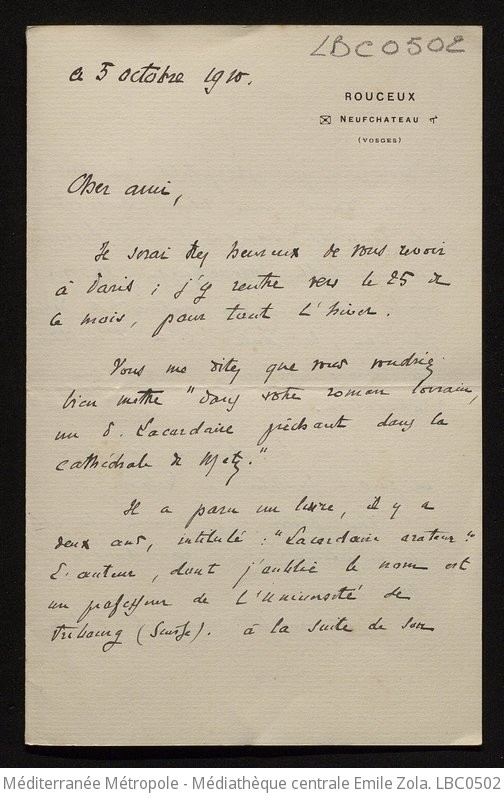 LBC0502
ce 5 octobre 1910.
ROUCEUX
NEUFCHATEAU
(VOSGES)
Cher ami,
Je serai très heureux de vous revoir
à Paris ; j'y rentre vers le 25 de
ce mois, pour tout l'hiver.
Vous me dites que vous voudriez
bien mettre "dans votre roman lorrain,
un P. Lacordaire prêchant dans la
cathédrale de Metz."
Il a paru un livre, il y a
deux ans, intitulé : "Lacordaire orateur".
L'auteur, dont j'oublie le nom est
un professeur de l'Université de
Fribourg (Suisse). à la suite de son
Méditerranée Métropole - Médiathèque centrale Emile Zola. LBC0502